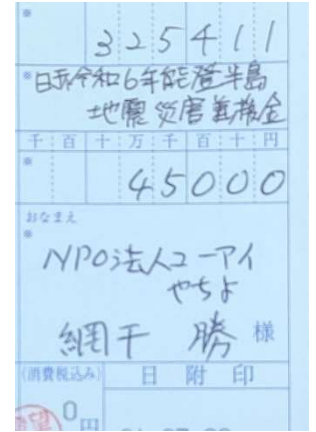 ※
325411
※日赤令和6年能登半島
地震災害義援金
千百十万千百十円
※
45000
おなまえ
※
NPO法人ユーアイ
やちよ
網干 勝 様
(消費税込み) 日附印
0円